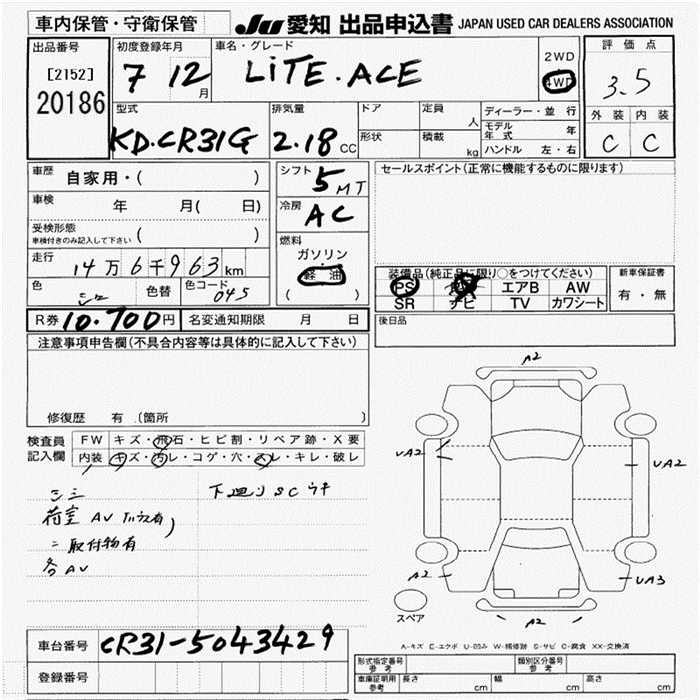 車内保管・守衛保管
JU 愛知 出品申込書 JAPAN USED CAR DEALERS ASSOCIATION
出品番号
[2152]
20186
初度登録年月
7 12月
車名・グレード
LITE.ACE
2WD
4WD
評価点
3.5
外装 内装
C C
型式
KD.CR31G
排気量
2.18 CC
ドア
形状
定員 人
積載 kg
ディーラー・並行
モデル年式 年
ハンドル 左・右
車歴 自家用・( )
車検 年 月( 日)
受検形態
車検付きのみ記入して下さい ( )
走行 14万6千963km
色 シロ 色替 色コード 045
シフト 5MT
冷房 AC
燃料
ガソリン
軽油
( )
セールスポイント(正常に機能するものに限ります)
装備品(純正品に限り○をつけてください)
PS エアB AW
SR ナビ TV カワシート
新車保証書
有・無
R券 10.700円 名変通知期限 月 日
後日品
注意事項申告欄(不具合内容等は具体的に記入して下さい)
修復歴 有 (箇所 )
検査員記入欄
FW キズ・飛石・ヒビ割・リペア跡・X要
内装 キズ・汚レ・コゲ・穴・スレ・キレ・破レ
シミ 下廻りSCウキ
荷室 AV
取付物有
各AV
A2
UA2
UA2
A2
UA3
A2
スペア
A-キズ E-エクボ U-凹み W-補修跡 S-サビ C-腐食 XX-交換済
車台番号 CR31-5043429
登録番号
形式指定番号 参考
類別区分番号 参考
車庫証明用 参考 長さ cm 幅 cm 高さ cm